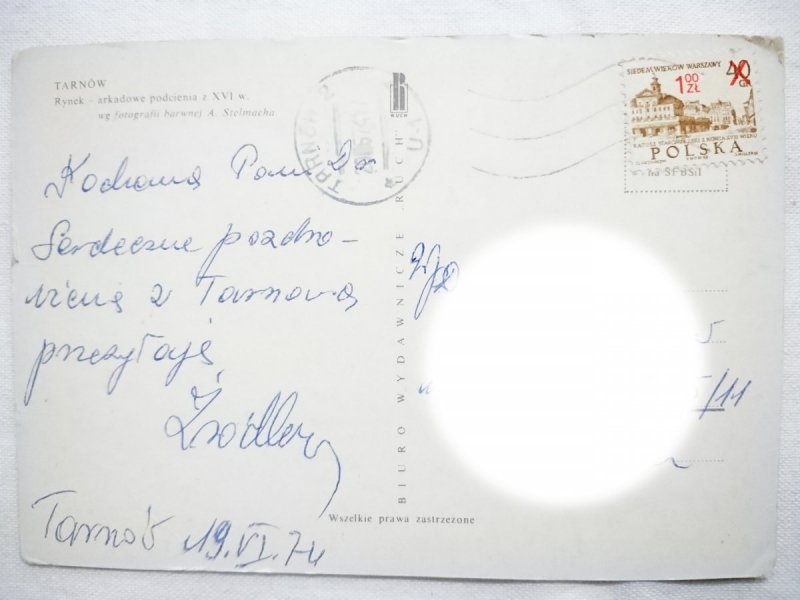 TARNÓW
Rynek - arkadowe podcienia z XVI w.
wg fotografii barwnej A. Stelmacha
Kochana Pani
Serdeczne pozdro-
wienia z Tarnowa
przesyłają
Tarnów 19.VI.74
BIURO WYDAWNICZE „RUCH”
RUCH
Wszelkie prawa zastrzeżone
TARNÓW
SIEDEM WIEKÓW WARSZAWY
40
GR
1 00
ZŁ
POLSKA
5
/11